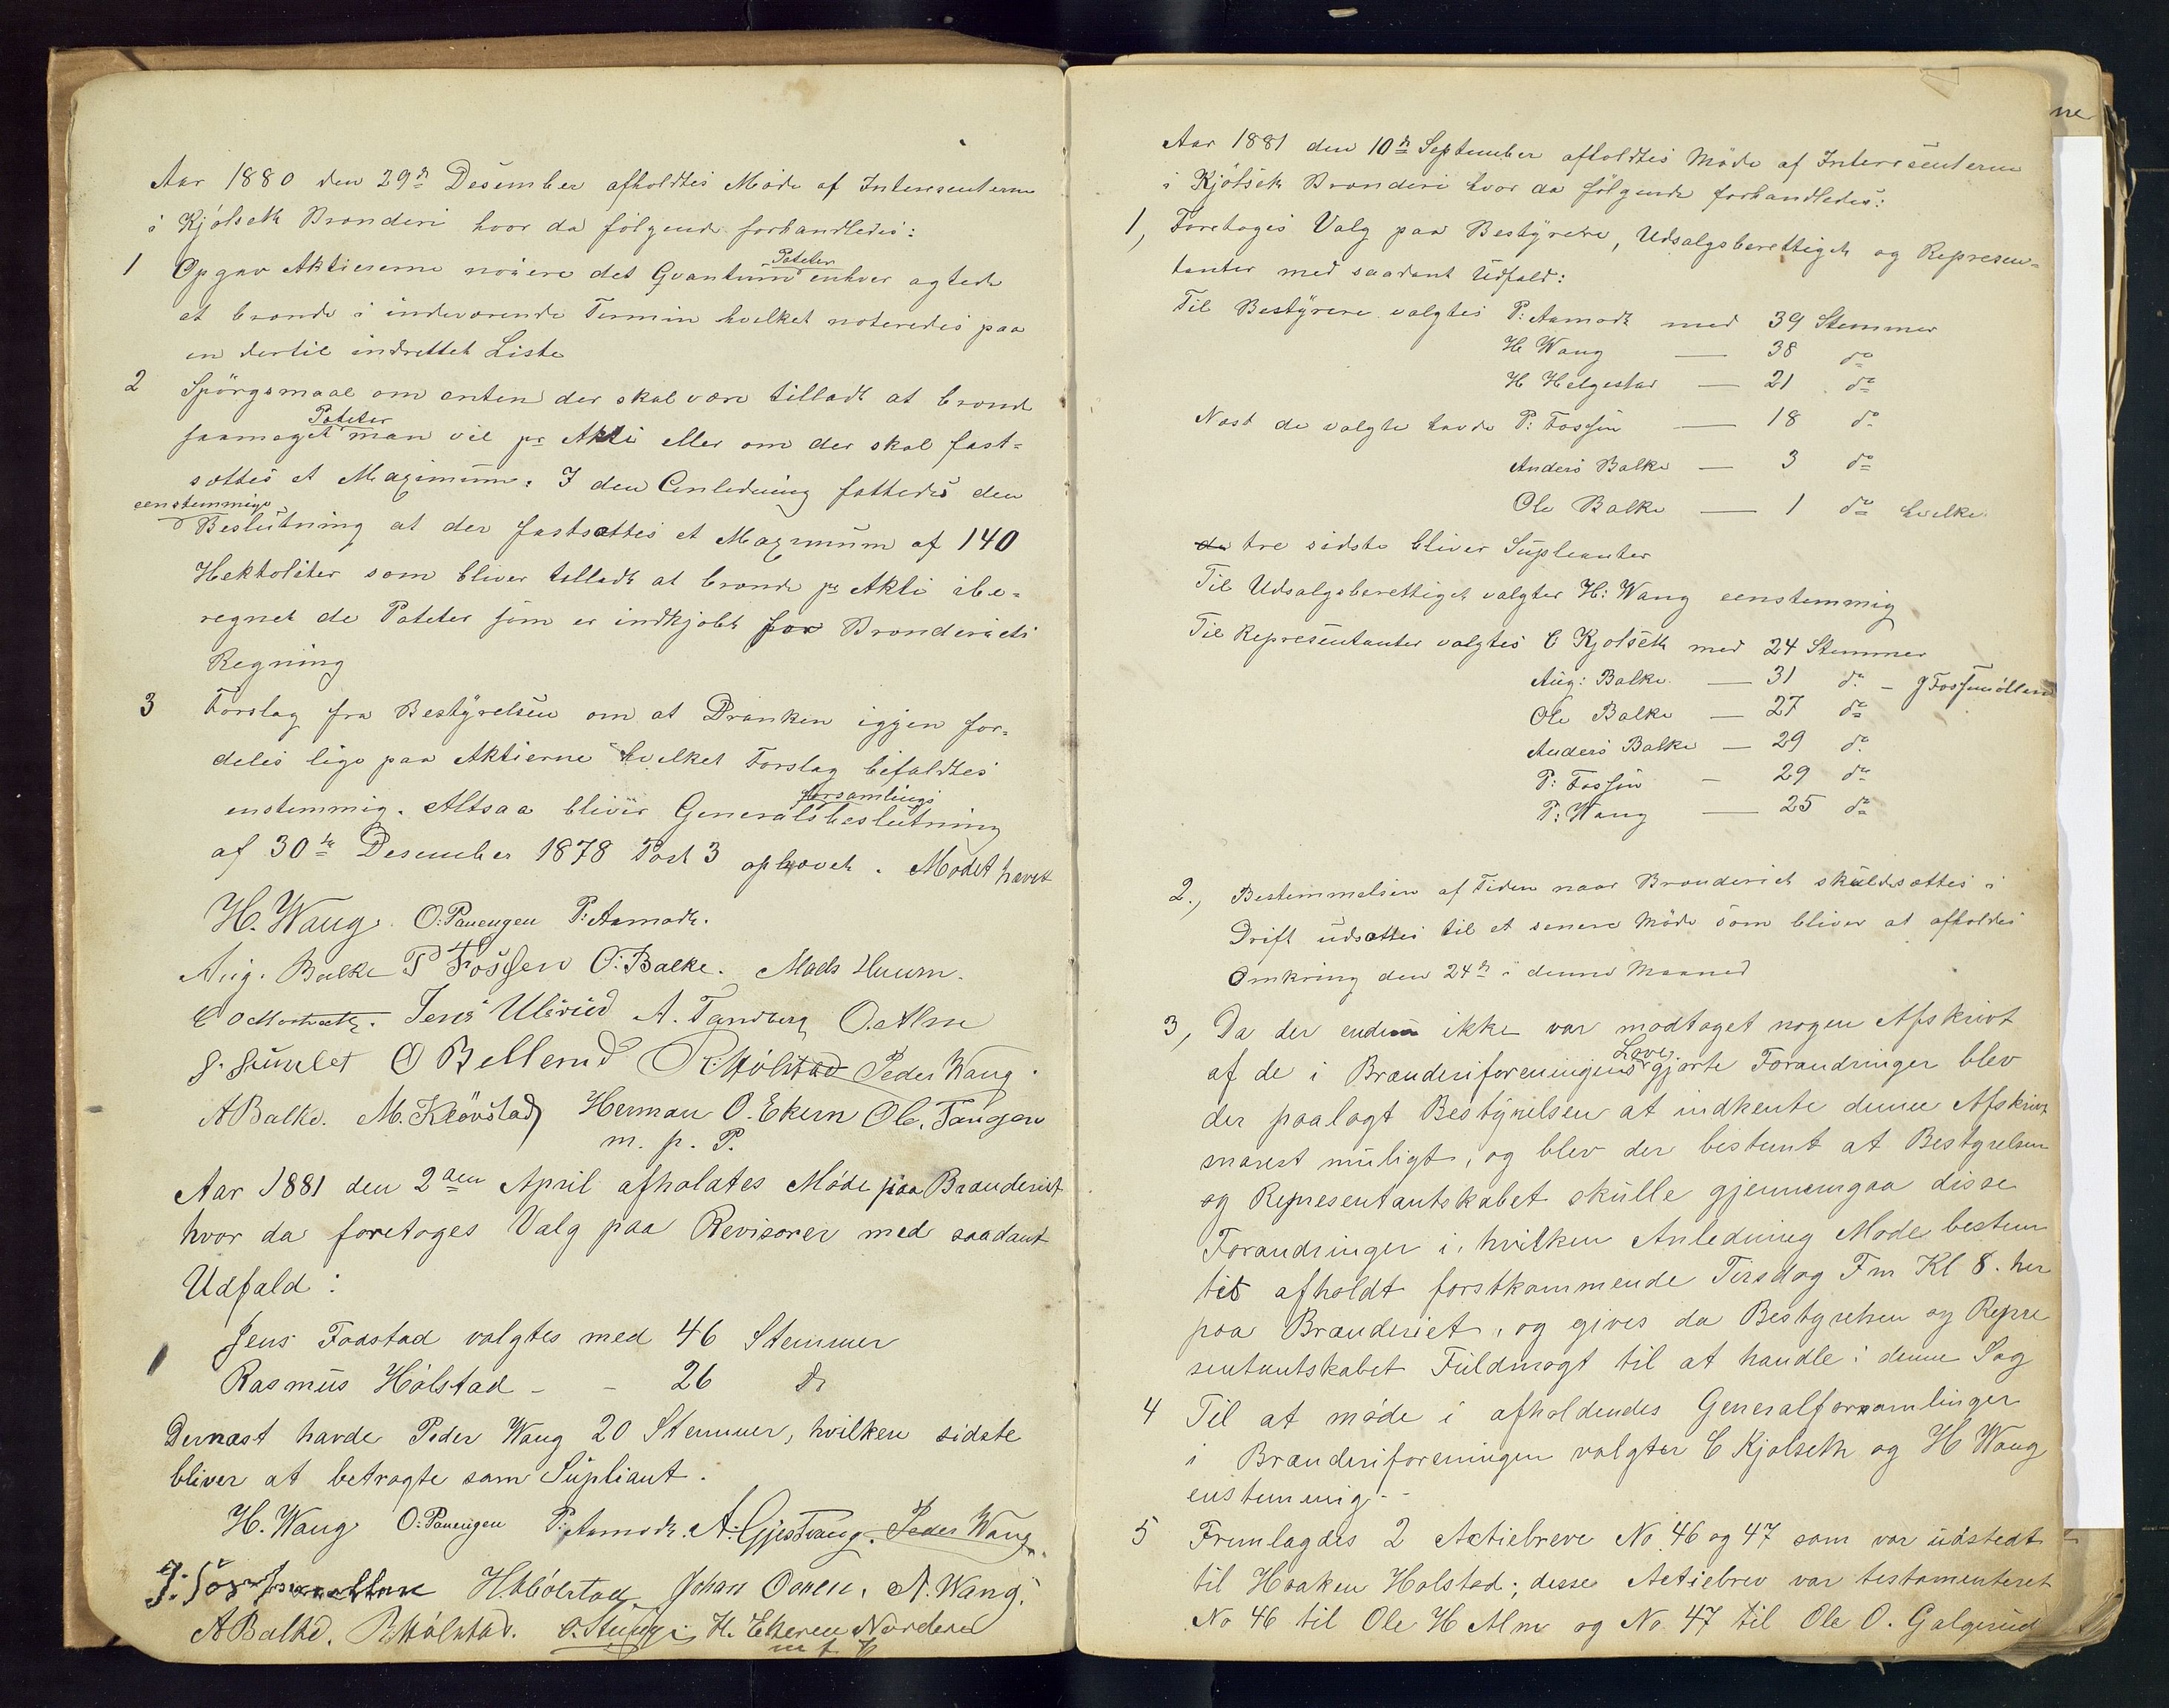 Aar 1880 den 29de Desember afholdtes Møde af Interesenterne
i Kjølseth Brænderi hvor da følgende forhandledes:
1 Opgav Aktieeierne nøiere det Qvantum Poteter enhver agtede
at brænde i indeværende Termin hvilket noteredes paa
en dertil indrettet Liste
2 Spørgsmaal om enten der skal være tilladt at brænde
saameget Poteter man vil pr Akti eller om der skal fast-
sættes et Maximum. I den Anledning fattedes den
eenstemmige
Beslutning at der fastsættes et Maxmum af 140
Hektoliter som bliver tilladt at brænde pr Akti ibe-
regnet de Poteter som er indkjøbt for Brænderiets
Regning
3 Forslag fra Bestyrelsen om at Dranken igjen for-
deles lige paa Aktierne hvilket Forslag bifaldtes
enstemmig. Altsaa bliver Generalforsamlingsbeslutning
af 30te Desember 1878 Post 3 ophævet. Mødet hævet
H. Wang. O: Panengen P: Aamodt.
Aug. Balke P Fossen O: Balke. Mads Huum.
Jens Ulsrud A. Tandberg O. Alm
O Bellerud R. Hólstad Peder Wang.
A Balke. M. Kløvstad Herman O. Ekern Ole. Tangen
m. p. P.
Aar 1881 den 2den April afholdtes Møde paa Brænderiet
hvor da foretoges Valg paa Revisorer med saadant
Udfald:
Jens Faastad valgtes med 46 Stemmer
Rasmus Hólstad - - 26 do
Dernæst havde Peder Wang 20 Stemmer, hvilken sidste
bliver at betragte som Supliant.
H. Wang O: Panengen P: Aamodt. A. Gjestvang. Peder Wang.
H. Hólstad Johan Onen. N. Wang.
A Balke. R Hólstad. H. Ekeren Nordere
m p P
Aar 1881 den 10de September afholdtes Møde af Interesenterne
i Kjølseth Brænderi hvor da følgende forhandledes:
1, Foretoges Valg paa Bestyrere, Udsalgsberettiget og Represen-
tanter med saadant Udfald:
Til Bestyrere valgtes P: Aamodt med 39 Stemmer
H Wang — 38 do
H Helgestad — 21 do
Næst de valgte havde P: Fossen — 18 do
Anders Balke — 3 do
Ole Balke — 1 do hvilke
de tre sidste bliver Supleanter
Til Udsalgsberettiget valgtes H: Wang eenstemmig
Til Representanter valgtes C Kjølseth med 24 Stemmer
Aug: Balke — 31 do - J Fossemøllen
Ole Balke — 27 do
Anders Balke — 29 do
P: Fossen — 29 do
P: Wang — 25 do
2., Bestemmelsen af Tiden naar Brænderiet skuldsættes i
Drift udsættes til et senere Møde som bliver at afholdes
Omkring den 24de i denne Maaned
3, Da der endnu ikke var modtaget nogen Afskrivt
af de i Brænderiforeningens Love gjorte Forandringer blev
der paalagt Bestyrelsen at indhente denne Afskrivt
snarest muligt, og blev der bestemt at Bestyrelsen
og Representantskabet skulle gjennemgaa disse
Forandringer i hvilken Anledning Møde bestem
tes afholdt førstkommende Tirsdag Fm Kl 8. her
paa Brænderiet, og gives da Bestyrelsen og Repre
sentantskabet Fuldmagt til at handle i denne Sag
4 Til at møde i afholdendes Generalforsamlinger
i Brænderiforeningen valgtes C Kjølseth og H Wang
enstemmig--
5 Fremlagdes 2 Actiebreve No. 46 og 47 som var udstedt
til Haaken Hólstad; disse Actiebrev var testamenteret
No 46 til Ole H Alm og No. 47 til Ole O. Galgerud